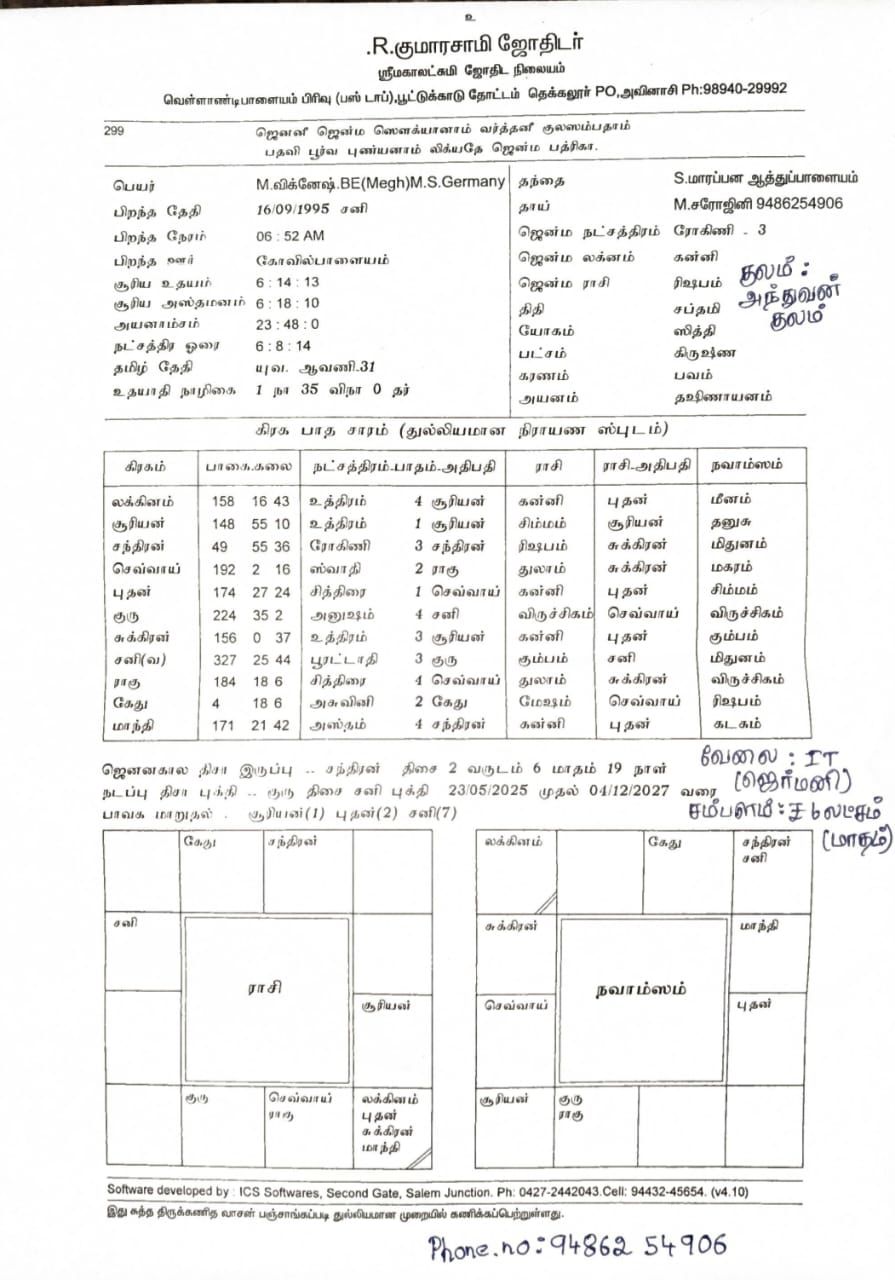 உ
.R.குமாரசாமி ஜோதிடர்
ஸ்ரீமகாலட்சுமி ஜோதிட நிலையம்
வெள்ளாண்டிபாளையம் பிரிவு (பஸ் டாப்),பூட்டுக்காடு தோட்டம் தெக்கலூர் PO,அவினாசி Ph:98940-29992
299 ஜெனனீ ஜென்ம ஸௌக்யானாம் வர்த்தனீ குலஸம்பதாம்
பதவி பூர்வ புண்யனாம் லிக்யதே ஜென்ம பத்ரிகா.
பெயர் M.விக்னேஷ்.BE(Megh)M.S.Germany
பிறந்த தேதி 16/09/1995 சனி
பிறந்த நேரம் 06 : 52 AM
பிறந்த ஊர் கோவில்பாளையம்
சூரிய உதயம் 6 : 14 : 13
சூரிய அஸ்தமனம் 6 : 18 : 10
அயனாம்சம் 23 : 48 : 0
நட்சத்திர ஓரை 6 : 8 : 14
தமிழ் தேதி யுவ. ஆவணி.31
உதயாதி நாழிகை 1 நா 35 விநா 0 தர்
தந்தை S.மாரப்பன ஆத்துப்பாளையம்
தாய் M.சரோஜினி 9486254906
ஜென்ம நட்சத்திரம் ரோகிணி - 3
ஜென்ம லக்னம் கன்னி
ஜென்ம ராசி ரிஷபம்
திதி சப்தமி
யோகம் ஸித்தி
பட்சம் கிருஷ்ண
கரணம் பவம்
அயனம் தக்ஷிணாயனம்
குலமீ :
அந்துவன்
குலம்
கிரக பாத சாரம் (துல்லியமான நிராயண ஸ்புடம்)
கிரகம் பாகை.கலை நட்சத்திரம்-பாதம்-அதிபதி ராசி ராசி-அதிபதி நவாம்ஸம்
லக்கினம் 158 16 43 உத்திரம் 4 சூரியன் கன்னி புதன் மீனம்
சூரியன் 148 55 10 உத்திரம் 1 சூரியன் சிம்மம் சூரியன் தனுசு
சந்திரன் 49 55 36 ரோகிணி 3 சந்திரன் ரிஷபம் சுக்கிரன் மிதுனம்
செவ்வாய் 192 2 16 ஸ்வாதி 2 ராகு துலாம் சுக்கிரன் மகரம்
புதன் 174 27 24 சித்திரை 1 செவ்வாய் கன்னி புதன் சிம்மம்
குரு 224 35 2 அனுஷம் 4 சனி விருச்சிகம் செவ்வாய் விருச்சிகம்
சுக்கிரன் 156 0 37 உத்திரம் 3 சூரியன் கன்னி புதன் கும்பம்
சனி(வ) 327 25 44 பூரட்டாதி 3 குரு கும்பம் சனி மிதுனம்
ராகு 184 18 6 சித்திரை 4 செவ்வாய் துலாம் சுக்கிரன் விருச்சிகம்
கேது 4 18 6 அசுவினி 2 கேது மேஷம் செவ்வாய் ரிஷபம்
மாந்தி 171 21 42 அஸ்தம் 4 சந்திரன் கன்னி புதன் கடகம்
ஜெனனகால திசா இருப்பு .. சந்திரன் திசை 2 வருடம் 6 மாதம் 19 நாள்
நடப்பு திசா புக்தி .. குரு திசை சனி புக்தி 23/05/2025 முதல் 04/12/2027 வரை
பாவக மாறுதல் . சூரியன்(1) புதன்(2) சனி(7)
வேலை : IT
(ஜெர்மனி)
சம்பளம் : ₹ 6 லட்சம்
(மாதம்)
கேது சந்திரன்
சனி
ராசி
சூரியன்
குரு செவ்வாய் லக்கினம்
ராகு புதன்
சுக்கிரன்
மாந்தி
லக்கினம் கேது சந்திரன்
சனி
சுக்கிரன் மாந்தி
நவாம்ஸம்
செவ்வாய் புதன்
சூரியன் குரு
ராகு
Software developed by : ICS Softwares, Second Gate, Salem Junction. Ph: 0427-2442043.Cell: 94432-45654. (v4.10)
இது சுத்த திருக்கணித வாசன் பஞ்சாங்கப்படி துல்லியமான முறையில் கணிக்கப்பெற்றுள்ளது.
Phone.no:94862 54906